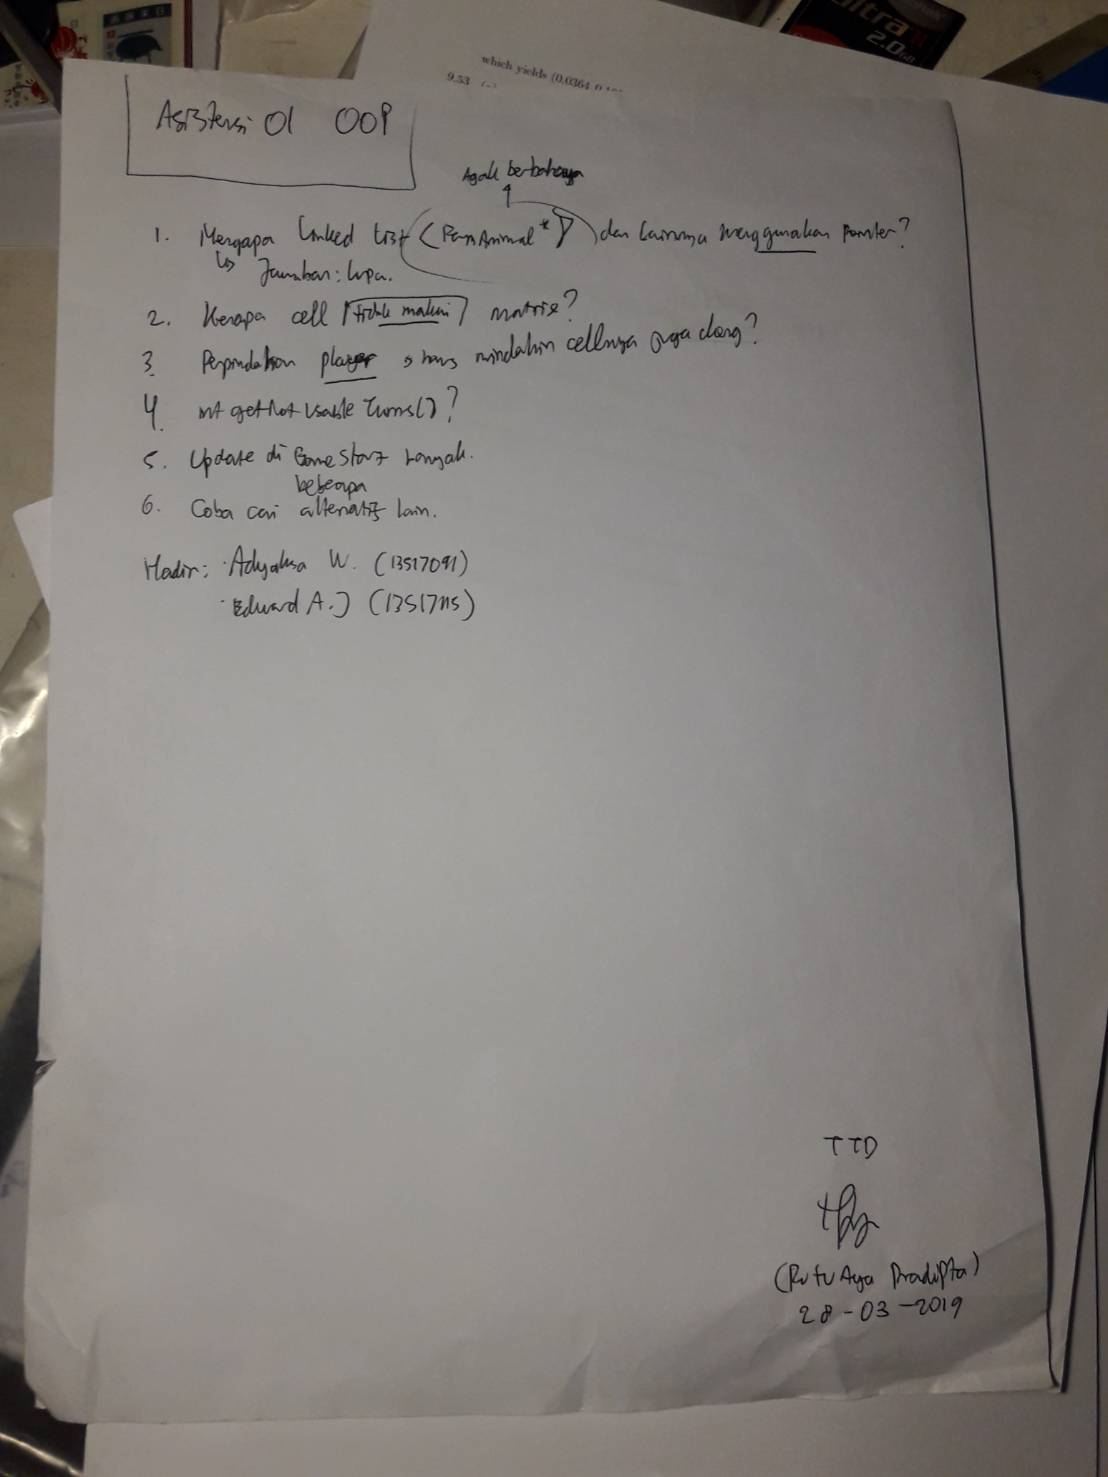 ultra II
2.0GB
which yields (0.0364
9.53
Asistensi 01 OOP
Agak berbahaya
1. Mengapa Linked List <FarmAnimal*> dan lainnya menggunakan pointer?
↳ Jawaban: lupa.
2. Kenapa cell tidak makin matrix?
3. Perpindahan player harus mindahin cellnya juga dong?
4. int getNotUsableTurns()?
5. Update di banyak.
beberapa
6. Coba cari alternatif lain.
Hadir: · Adyaksa W. (13517091)
· Eduard A.J (13517115)
TTD
(Putu Arya Pradipta)
28-03-2019